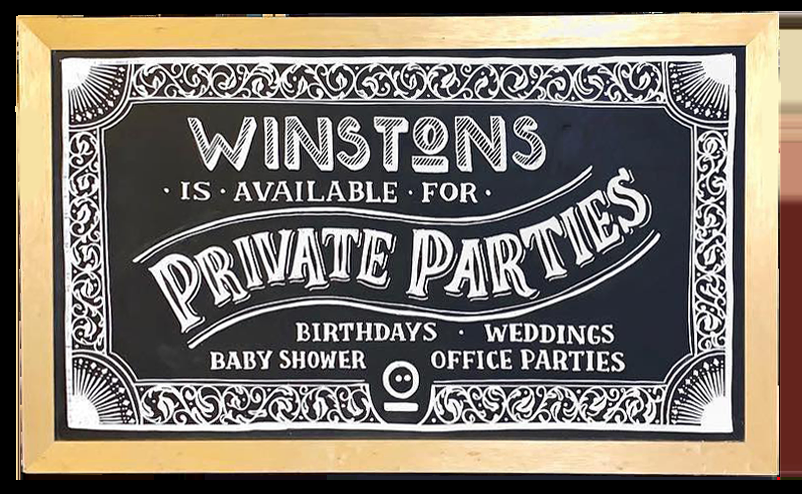 WINSTONS
· IS · AVAILABLE · FOR ·
PRIVATE PARTIES
BIRTHDAYS · WEDDINGS
BABY SHOWER OFFICE PARTIES